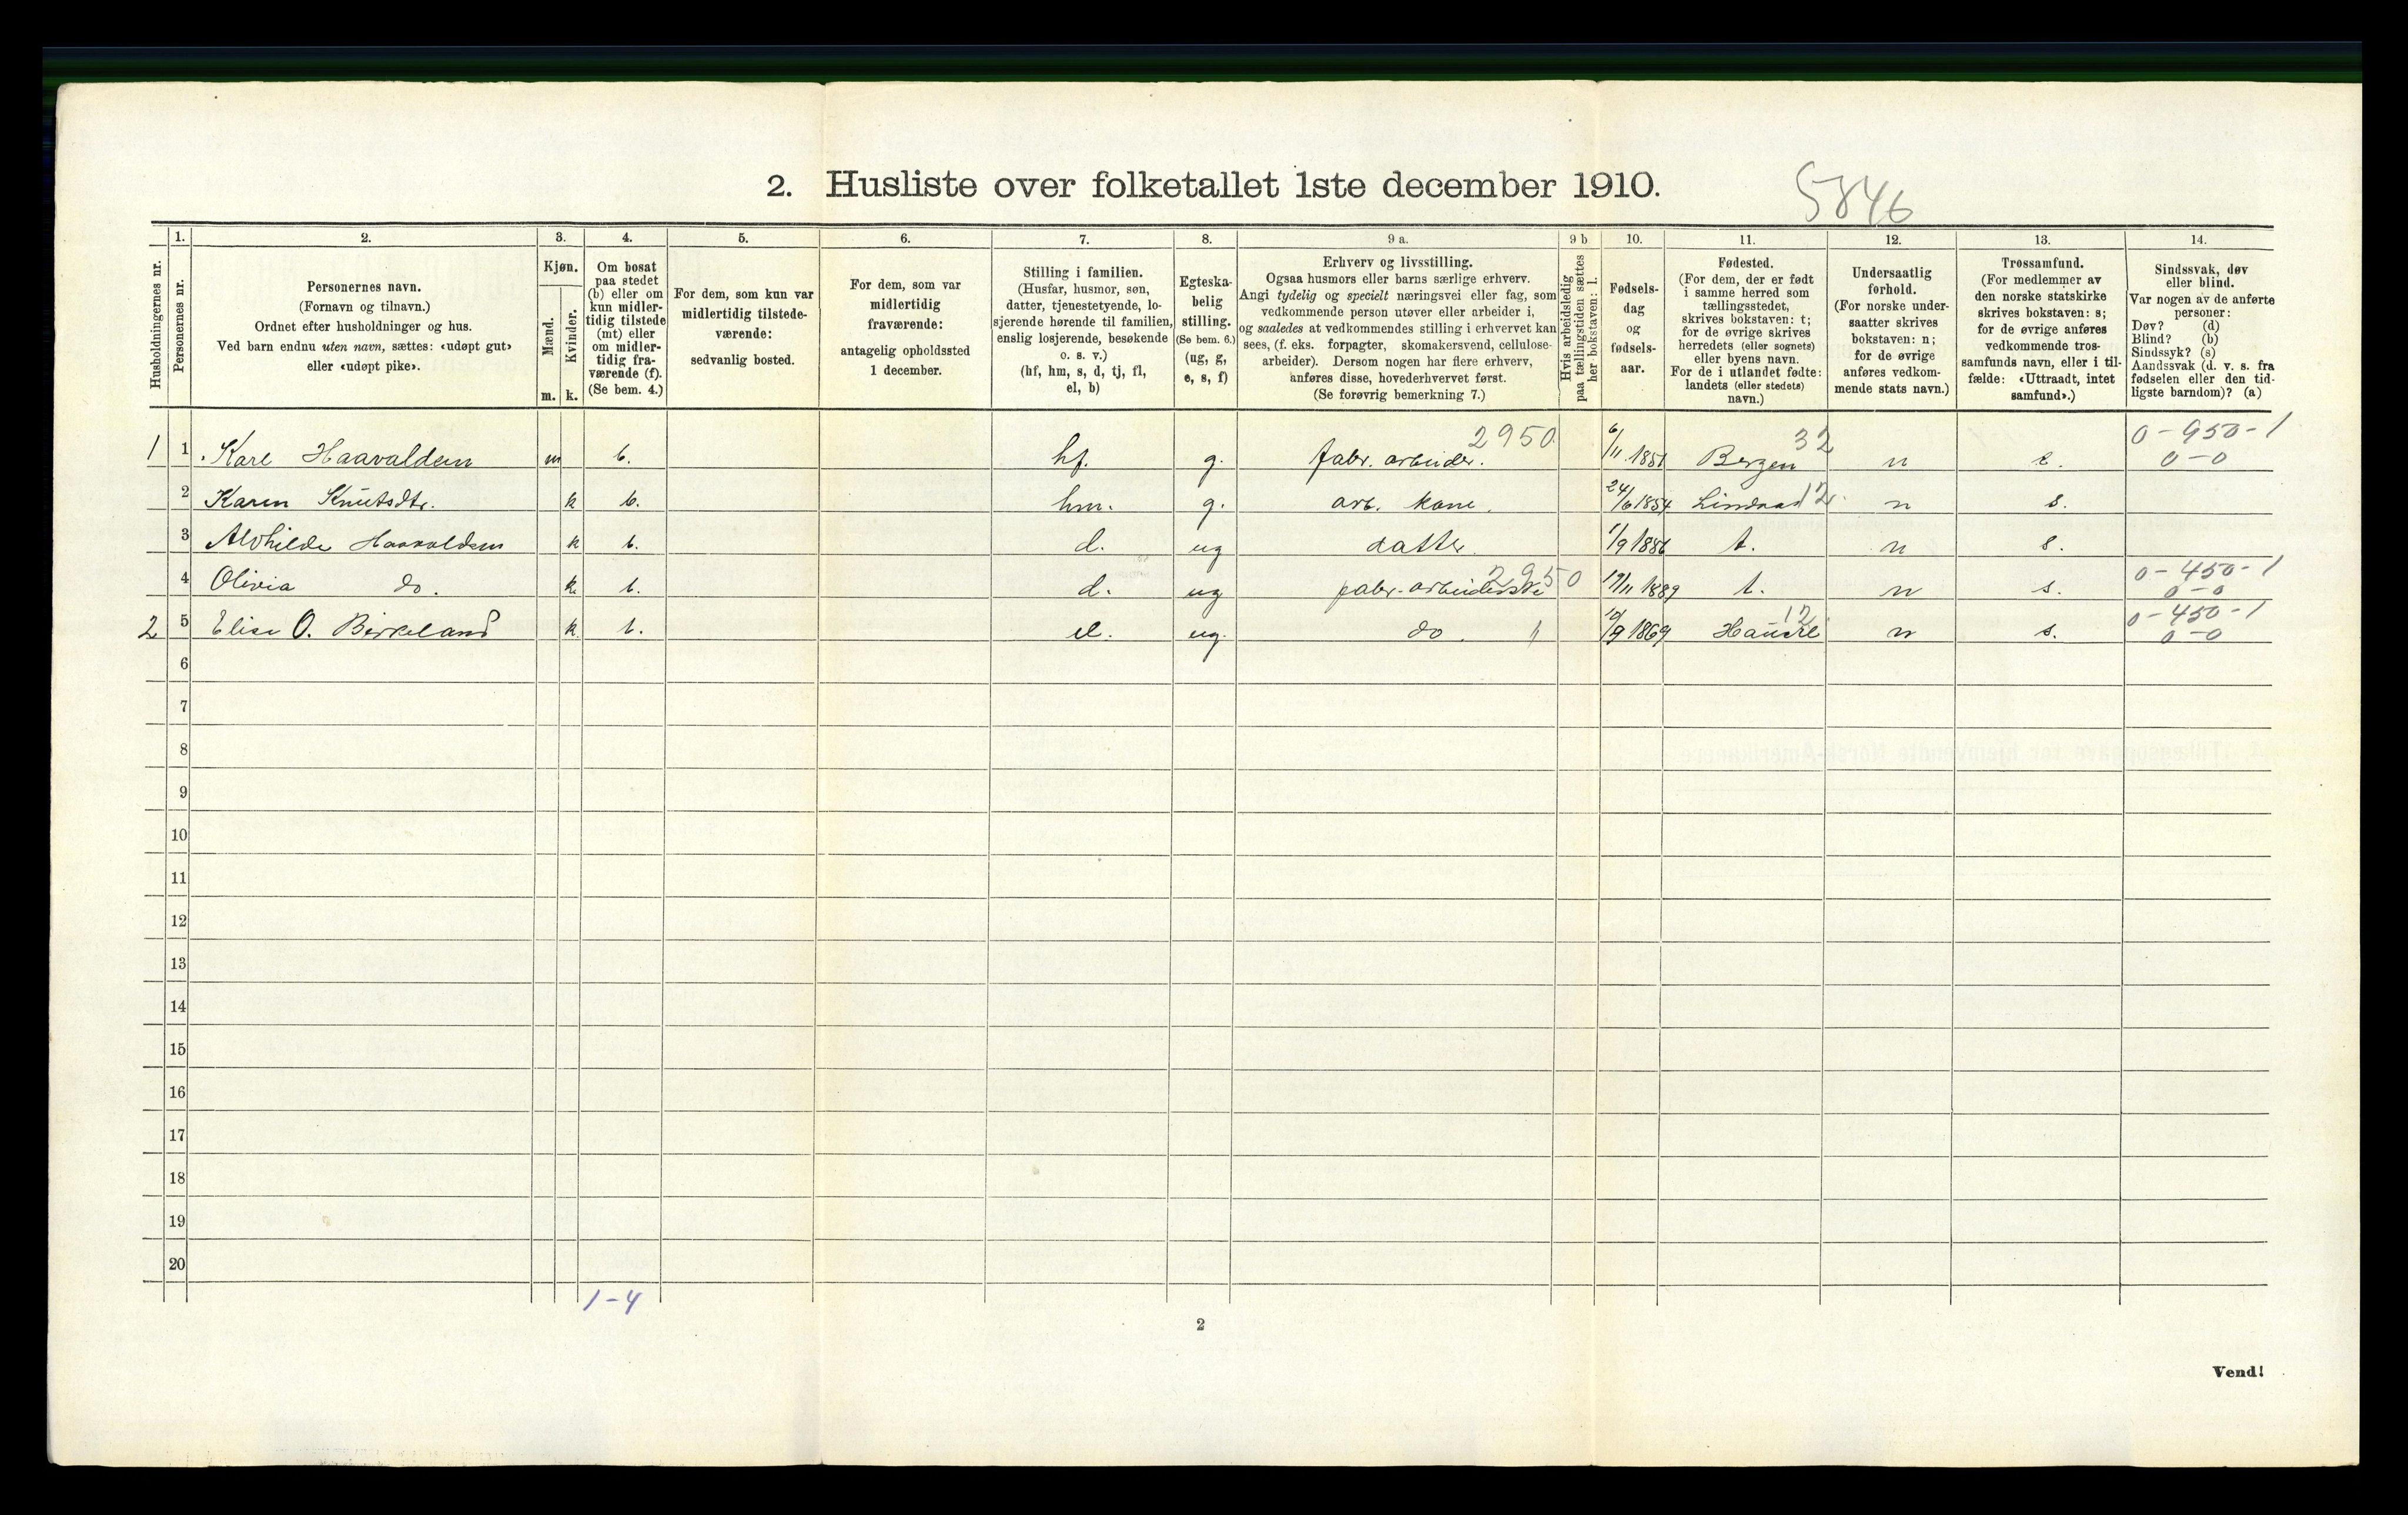 2. Husliste over folketallet 1ste december 1910.
5846
Husholdningernes nr.
1.
Personernes nr.
2.
Personernes navn.
(Fornavn og tilnavn.)
Ordnet efter husholdninger og hus.
Ved barn endnu uten navn, sættes: «udøpt gut»
eller «udøpt pike».
3.
Kjøn.
Mænd.
Kvinder.
m. k.
4.
Om bosat
paa stedet
(b) eller om
kun midler-
tidig tilstede
(mt) eller
om midler-
tidig fra-
værende (f).
(Se bem. 4.)
5.
For dem, som kun var
midlertidig tilstede-
værende:
sedvanlig bosted.
6.
For dem, som var
midlertidig
fraværende:
antagelig opholdssted
1 december.
7.
Stilling i familien.
(Husfar, husmor, søn,
datter, tjenestetyende, lo-
sjerende hørende til familien,
enslig losjerende, besøkende
o. s. v.)
(hf, hm, s, d, tj, fl,
el, b)
8.
Egteska-
belig
stilling.
(Se bem. 6.)
(ug, g,
e, s, f)
9 a.
Erhverv og livsstilling.
Ogsaa husmors eller barns særlige erhverv.
Angi tydelig og specielt næringsvei eller fag, som
vedkommende person utøver eller arbeider i,
og saaledes at vedkommendes stilling i erhvervet kan
sees, (f. eks. forpagter, skomakersvend, cellulose-
arbeider). Dersom nogen har flere erhverv,
anføres disse, hovederhvervet først.
(Se forøvrig bemerkning 7.)
9 b
Hvis arbeidsledig
paa tællingstiden sættes
her bokstaven: l.
10.
Fødsels-
dag
og
fødsels-
aar.
11.
Fødested.
(For dem, der er født
i samme herred som
tællingsstedet,
skrives bokstaven: t;
for de øvrige skrives
herredets (eller sognets)
eller byens navn.
For de i utlandet fødte:
landets (eller stedets)
navn.)
12.
Undersaatlig
forhold.
(For norske under-
saatter skrives
bokstaven: n;
for de øvrige
anføres vedkom-
mende stats navn.)
13.
Trossamfund.
(For medlemmer av
den norske statskirke
skrives bokstaven: s;
for de øvrige anføres
vedkommende tros-
samfunds navn, eller i til-
fælde: «Uttraadt, intet
samfund».)
14.
Sindssvak, døv
eller blind.
Var nogen av de anførte
personer:
Døv? (d)
Blind? (b)
Sindssyk? (s)
Aandssvak (d. v. s. fra
fødselen eller den tid-
ligste barndom)? (a)
2950 32 0-950-1
1 1 Karl Haavaldsen m b. hf. g. fabr. arbeider. 6/11 1851 Bergen n s. 0-0
2 Karen Knutsdtr. k b. hm. g. arb. kone. 24/6 1854 Lindaas 12 n s.
3 Alvhilde Haavaldsen k b. d. ug datter 1/9 1886 t. n s.
2950 0-450-1
4 Olivia do. k. b. d. ug fabr. arbeiderske 19/11 1889 t. n s. 0-0
12 0-450-1
2 5 Elise O. Birkeland k b. el. ug. do. " 10/9 1869 Hausze n s. 0-0
6
7
8
9
10
11
12
13
14
15
16
17
18
19
20
1-4
2
Vend!